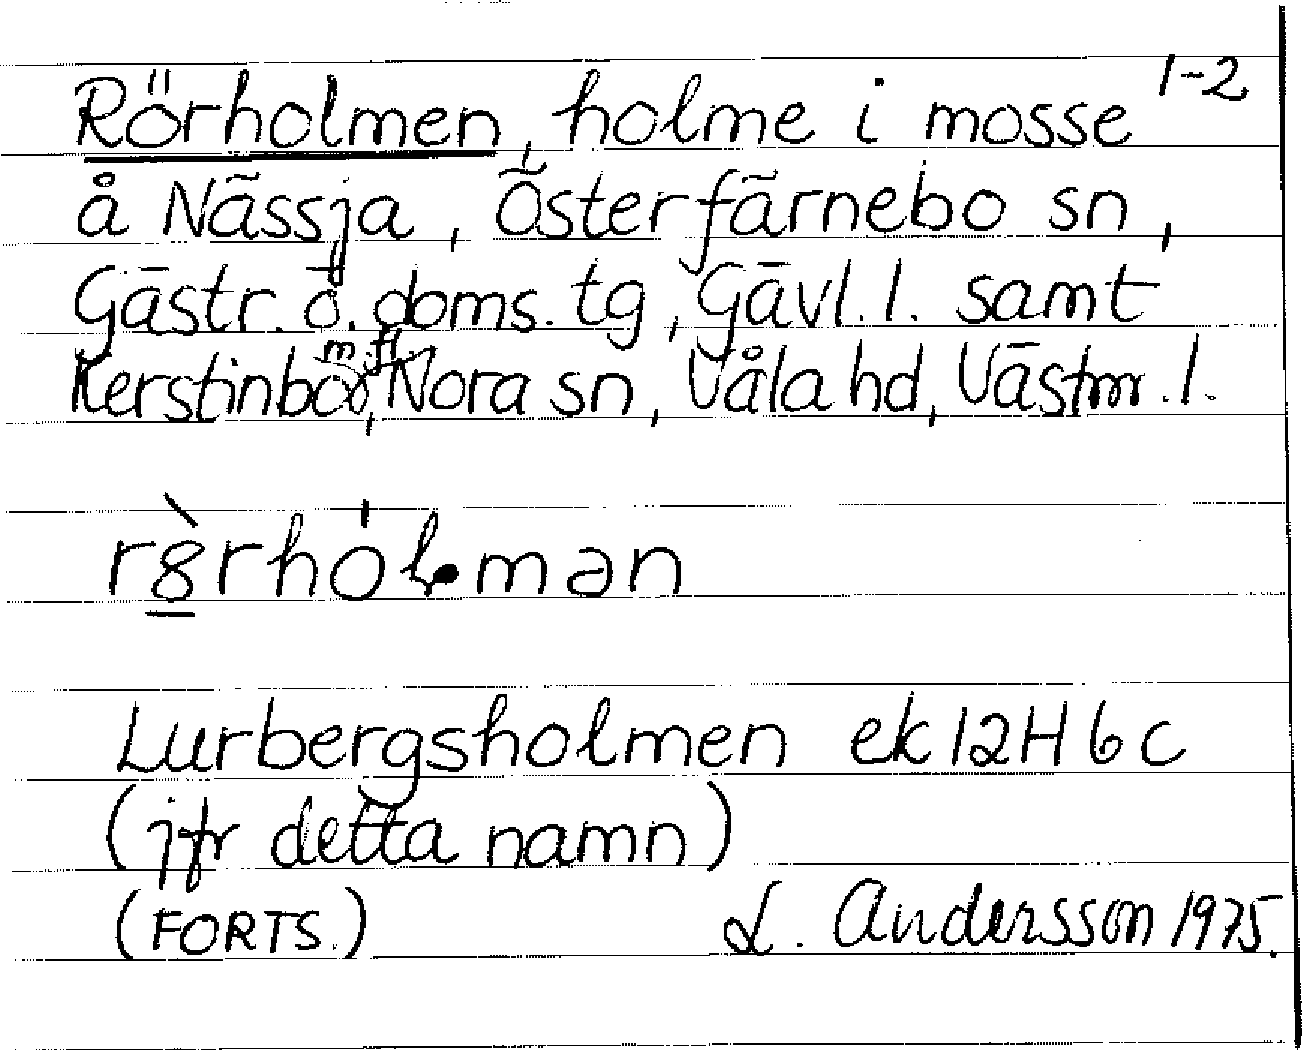 Rörholmen, holme i mosse 1-2
å Nässja, Österfärnebo sn,
Gästr. ö. doms. tg, Gävl. l. samt
Kerstinbo m.fl., Nora sn, Våla hd, Västm. l.
rö̀rhól•mən
Lurbergsholmen ek 12H 6c
(jfr detta namn)
(FORTS.) L. Andersson 1975.